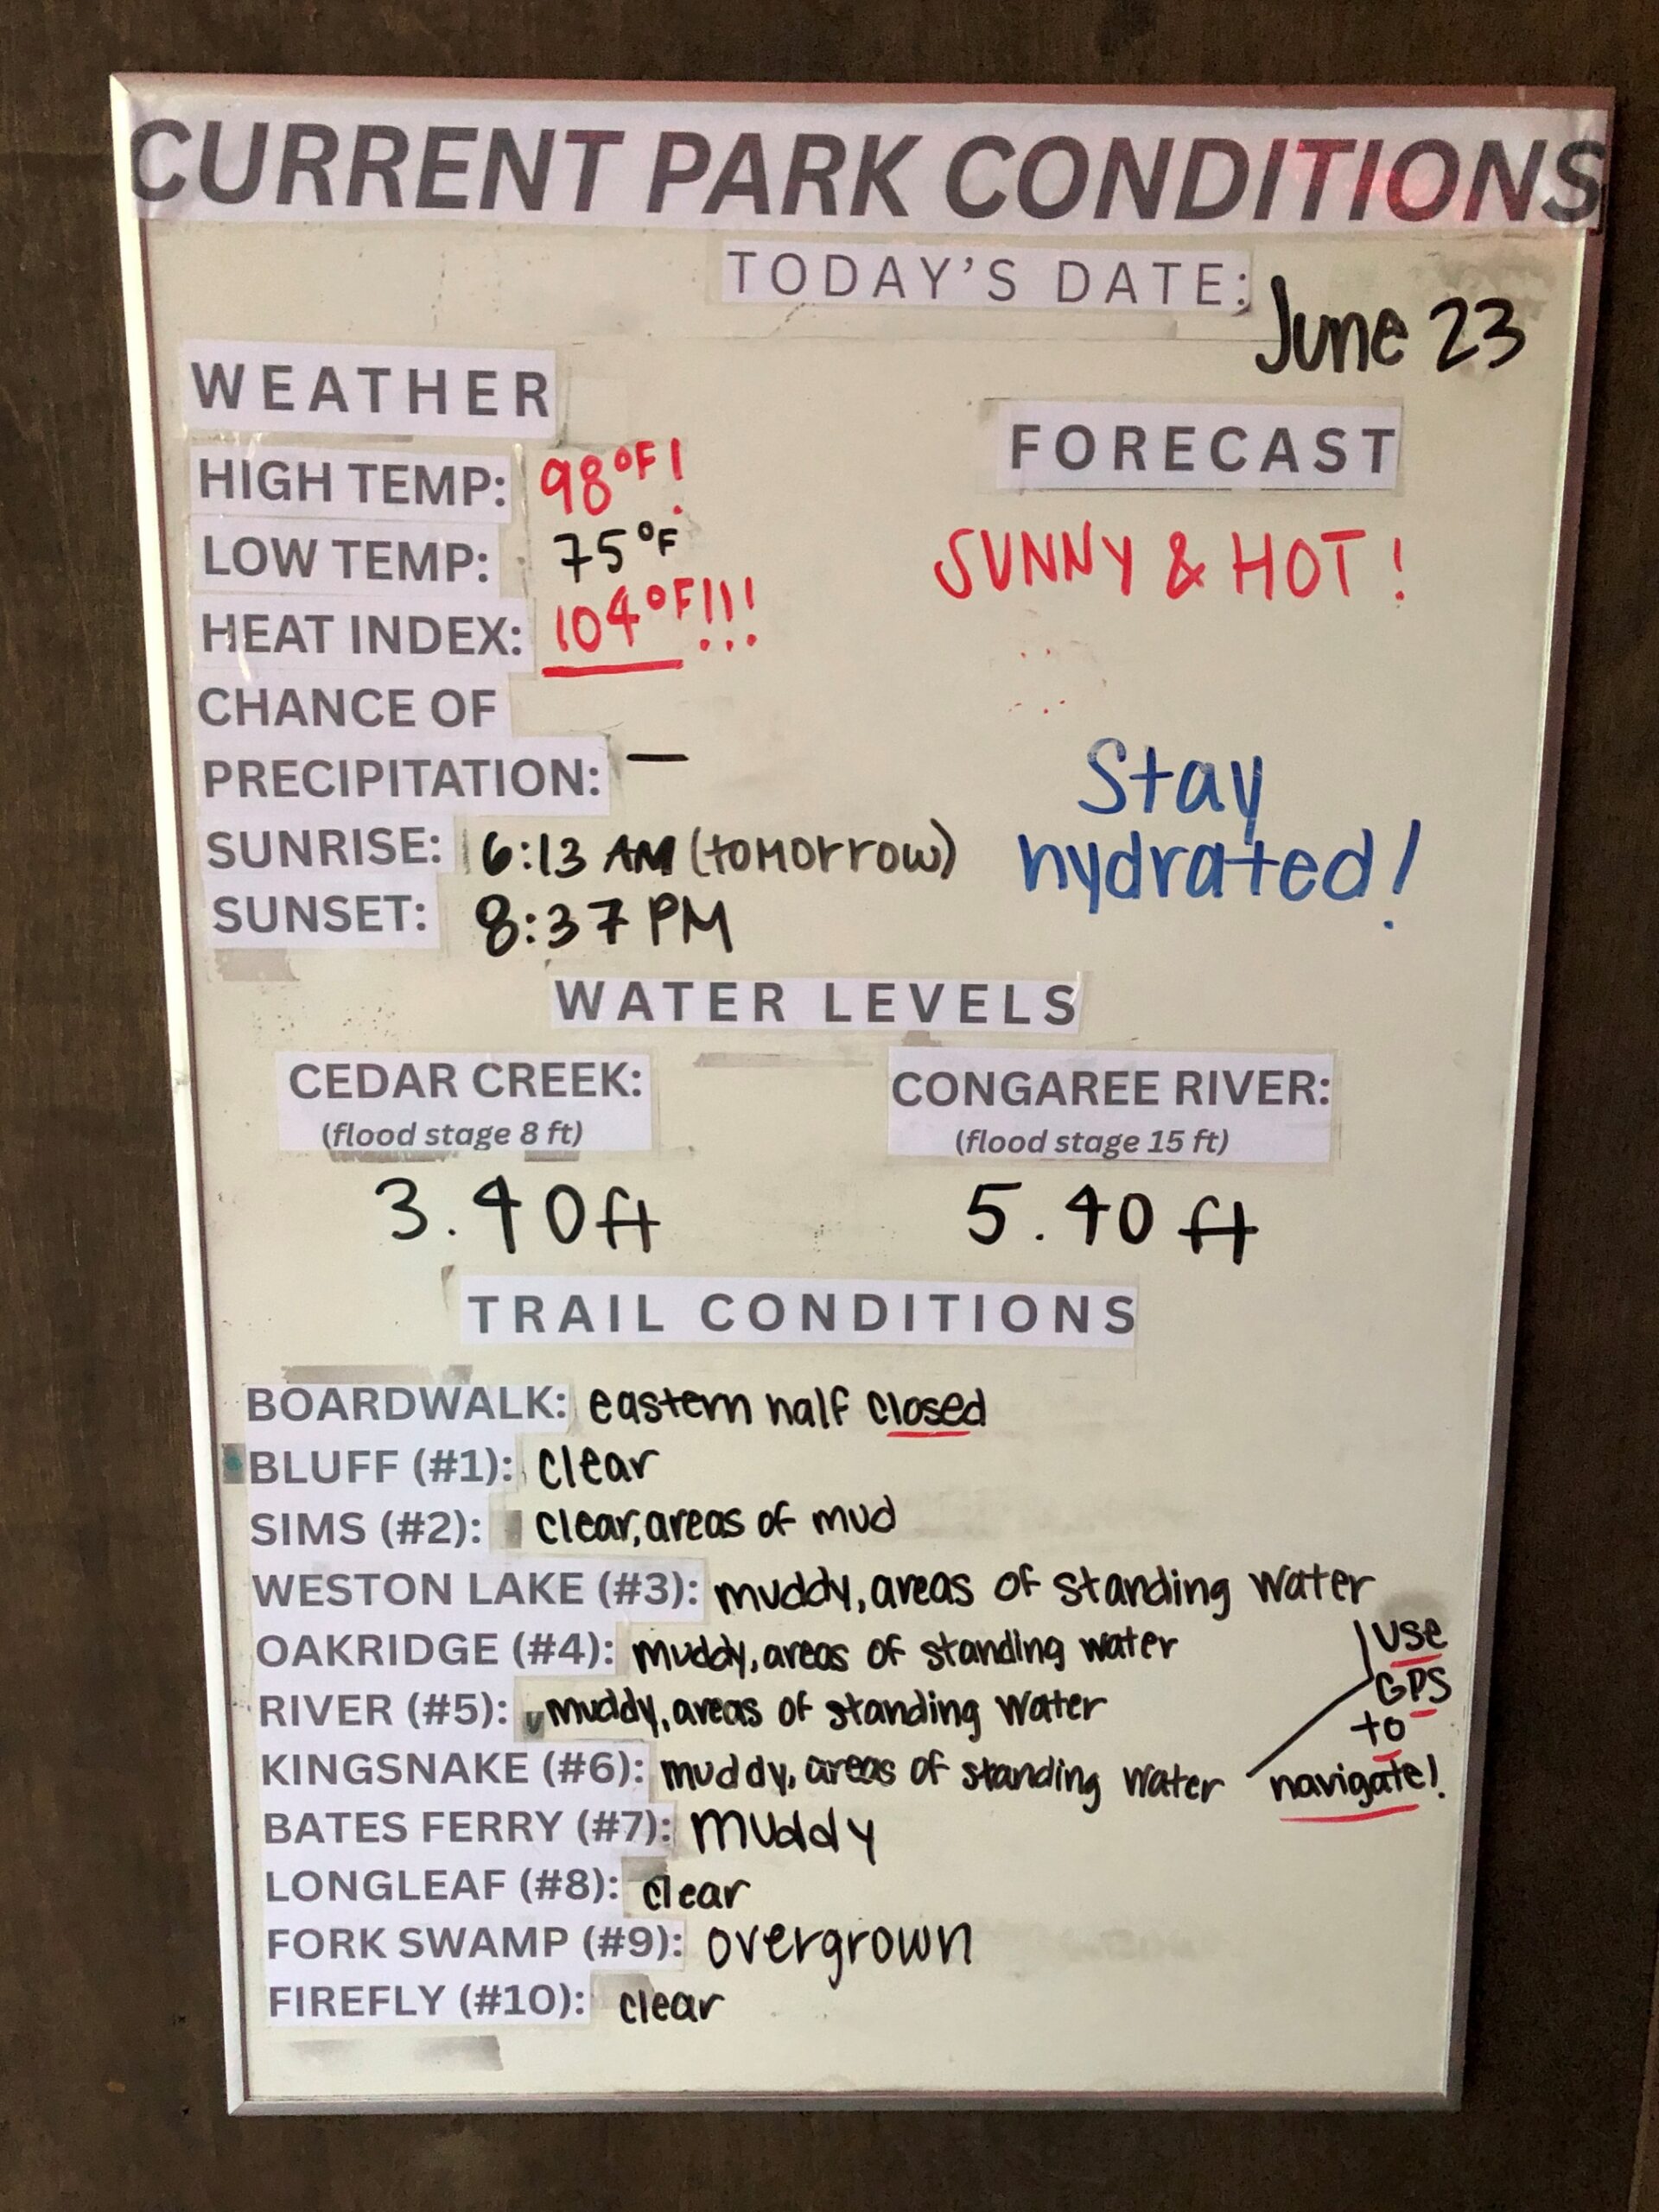 CURRENT PARK CONDITIONS
TODAY'S DATE: June 23
WEATHER
HIGH TEMP: 98°F!
LOW TEMP: 75°F
HEAT INDEX: 104°F!!!
CHANCE OF
PRECIPITATION: —
SUNRISE: 6:13 AM (tomorrow)
SUNSET: 8:37 PM
FORECAST
SUNNY & HOT!
Stay
hydrated!
WATER LEVELS
CEDAR CREEK:
(flood stage 8 ft)
3.40ft
CONGAREE RIVER:
(flood stage 15 ft)
5.40 ft
TRAIL CONDITIONS
BOARDWALK: eastern half closed
BLUFF (#1): clear
SIMS (#2): clear, areas of mud
WESTON LAKE (#3): muddy, areas of standing water
OAKRIDGE (#4): muddy, areas of standing water
RIVER (#5): muddy, areas of standing water
KINGSNAKE (#6): muddy, areas of standing water
use
GPS
to
navigate!
BATES FERRY (#7): muddy
LONGLEAF (#8): clear
FORK SWAMP (#9): overgrown
FIREFLY (#10): clear